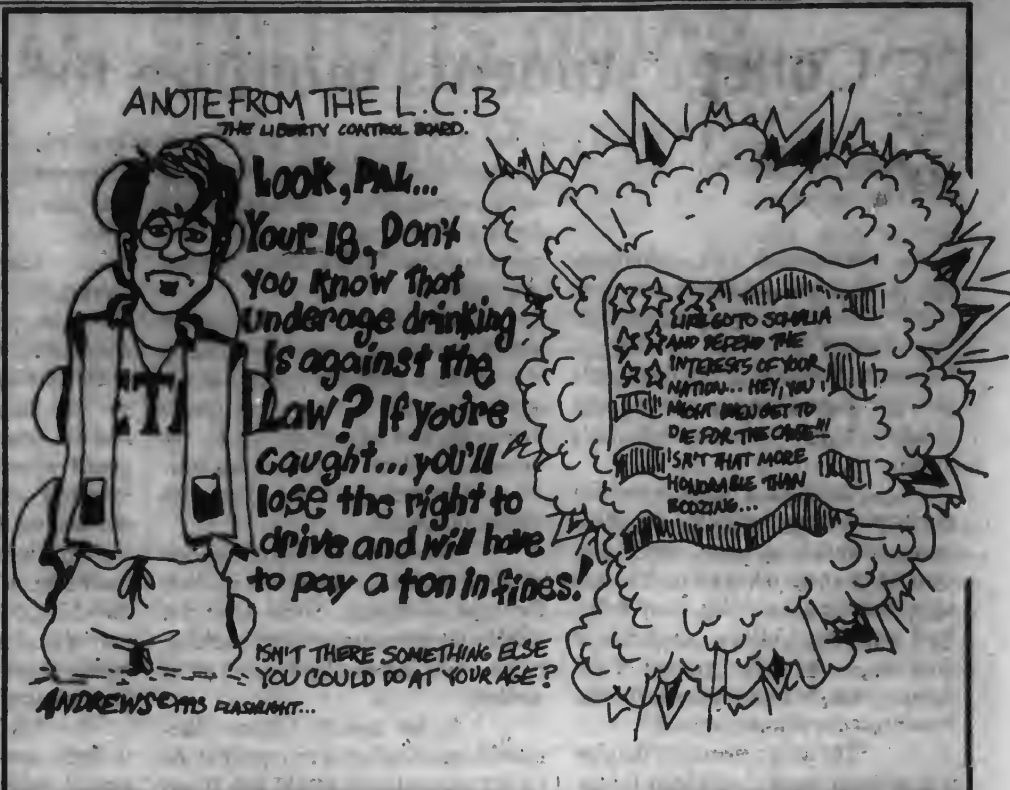 A NOTE FROM THE L.C.B
THE LIBERTY CONTROL BOARD.
Look, PAL...
Your 18, Don't
you know that
underage drinking
is against the
Law? If you're
caught... you'll
lose the right to
drive and will have
to pay a ton in fines!
ISN'T THERE SOMETHING ELSE
YOU COULD DO AT YOUR AGE?
LIKE GO TO SOMALIA
AND DEFEND THE
INTERESTS OF YOUR
NATION... HEY, YOU
MIGHT EVEN GET TO
DIE FOR THE CAUSE!!!
ISN'T THAT MORE
HONORABLE THAN
BOOZING...
ANDREWS ©1993 FLASHLIGHT...